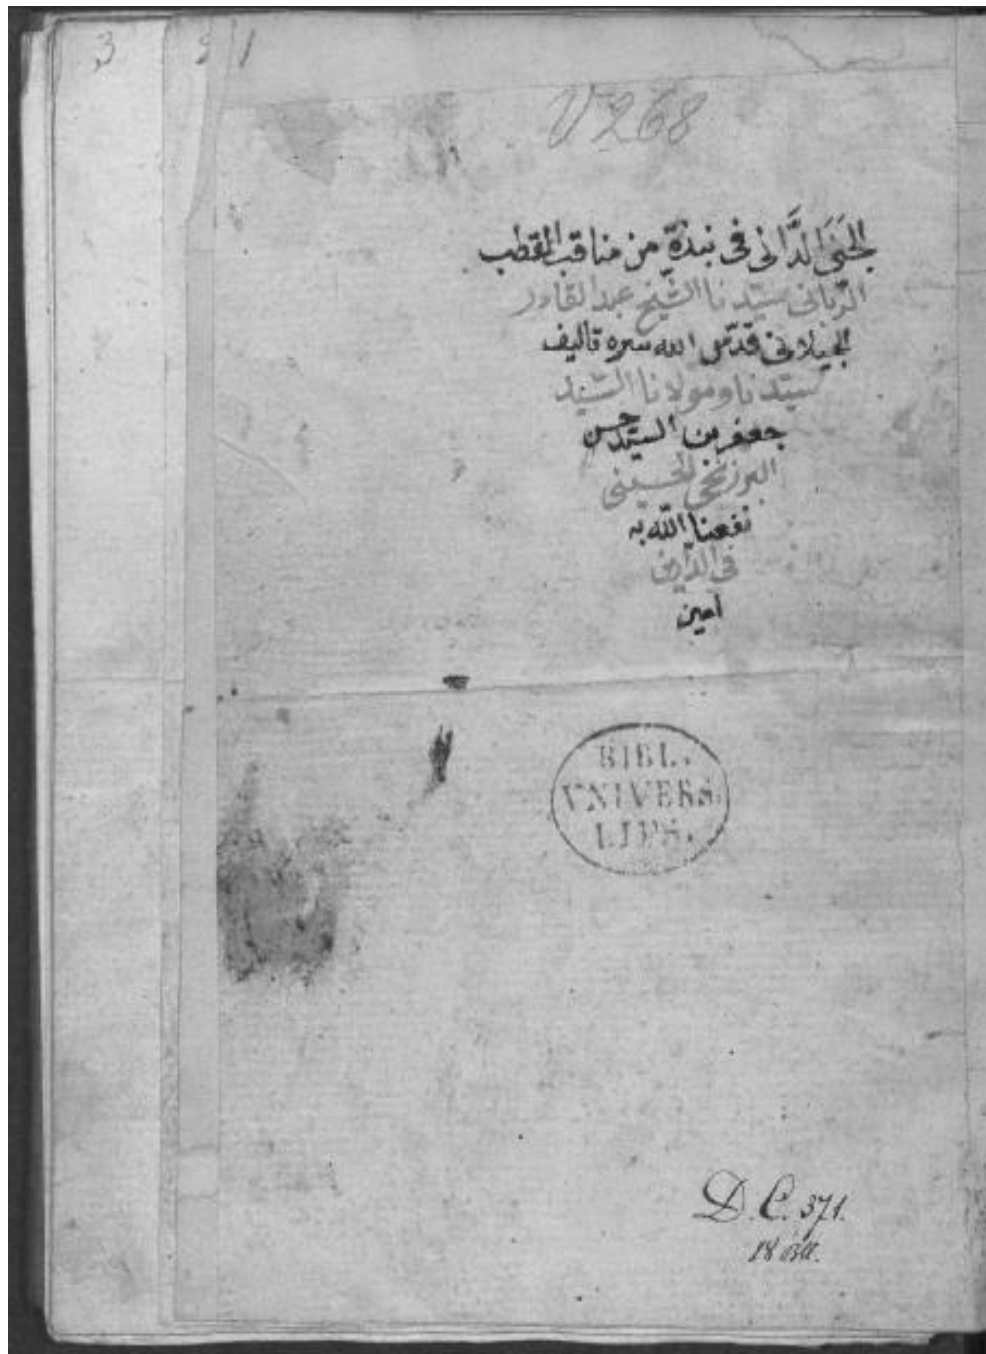 3 3 1
V 268
الجَنَى الدَّانى فى نبذة من مناقب القطب
الربانى سيّدنا الشيخ عبد القادر
الجيلانى قدّس الله سره تاليف
سيّدنا ومولانا السّيد
جعفر بن السيّد حسن
البرزنجى الحسينى
نفعنا الله به
فى الدارين
امين
BIBL.
VNIVERS.
LIPS.
D. C. 371.